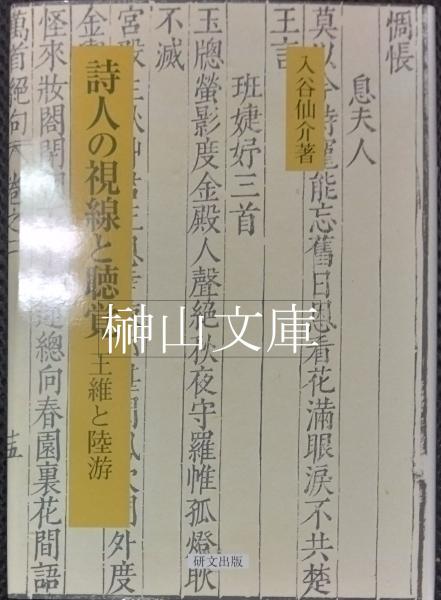 惆悵
息夫人
莫以今時寵能忘舊日恩看花滿眼淚不共楚
王言
班婕妤三首
玉牕螢影度金殿人聲絕秋夜守羅帷孤燈耿
不滅
外度
怪來妝閣閉
總向春園裏花間語
萬首絕句
卷之二
十五
入谷仙介著
詩人の視線と聴覚
王維と陸游
研文出版
榊山文庫